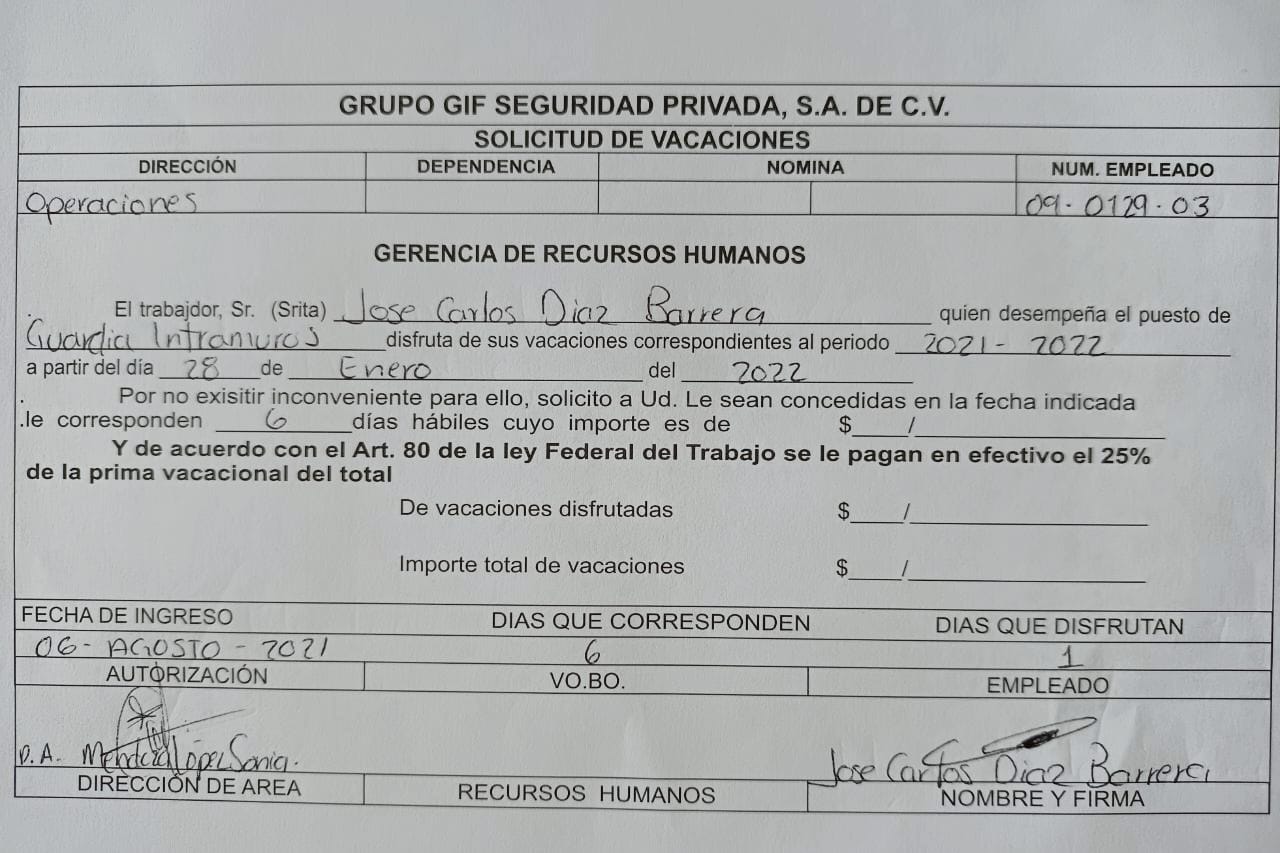 GRUPO GIF SEGURIDAD PRIVADA, S.A. DE C.V.
SOLICITUD DE VACACIONES
DIRECCIÓN DEPENDENCIA NOMINA NUM. EMPLEADO
Operaciones 09-0129-03
GERENCIA DE RECURSOS HUMANOS
El trabajdor, Sr. (Srita) Jose Carlos Diaz Barrera quien desempeña el puesto de
Guardia Intramuros disfruta de sus vacaciones correspondientes al periodo 2021- 2022
a partir del día 28 de Enero del 2022
Por no exisitir inconveniente para ello, solicito a Ud. Le sean concedidas en la fecha indicada
.le corresponden 6 días hábiles cuyo importe es de $ /
Y de acuerdo con el Art. 80 de la ley Federal del Trabajo se le pagan en efectivo el 25%
de la prima vacacional del total
De vacaciones disfrutadas $ /
Importe total de vacaciones $ /
FECHA DE INGRESO DIAS QUE CORRESPONDEN DIAS QUE DISFRUTAN
06- AGOSTO - 2021 6 1
AUTORIZACIÓN VO.BO. EMPLEADO
P.A. López Sonia. Jose Carlos Diaz Barrera
DIRECCIÓN DE AREA RECURSOS HUMANOS NOMBRE Y FIRMA